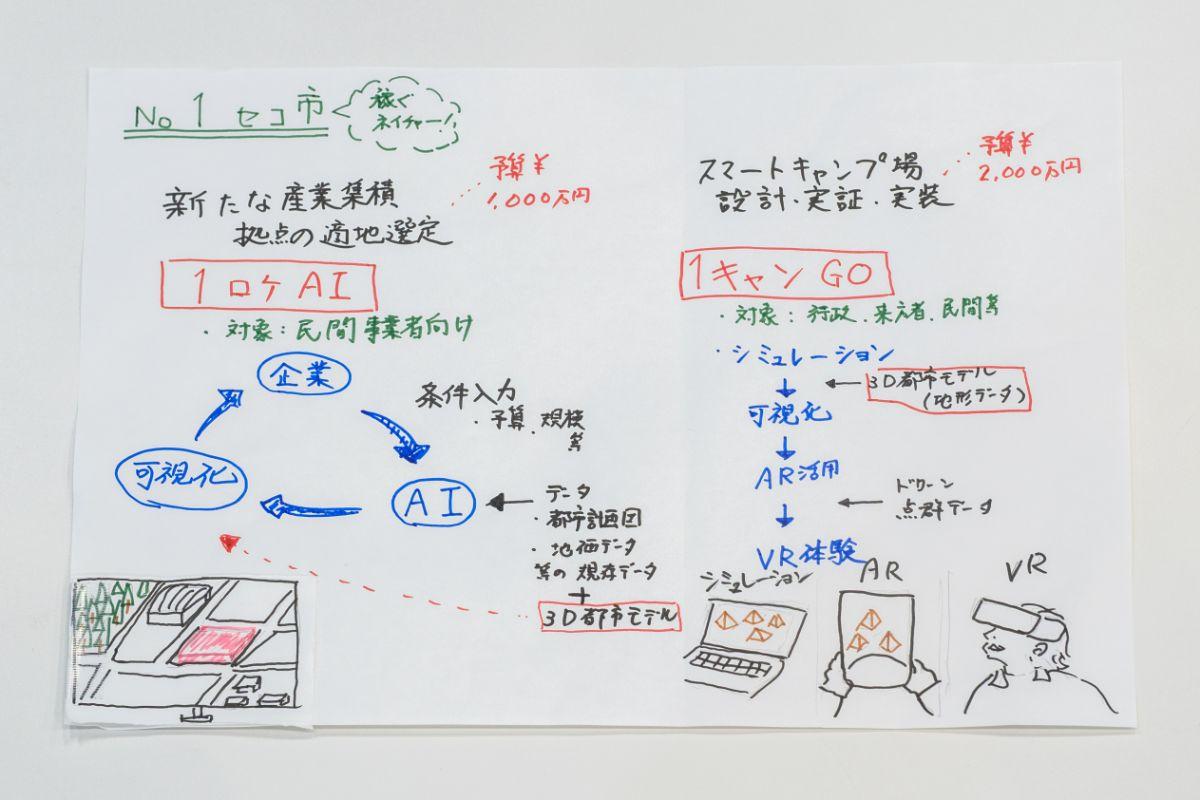 No1 セコ市
稼ぐ
ネイチャー!!
新たな産業集積
拠点の適地選定
予算¥
1,000万円
1ロケAI
・対象：民間事業者向け
企業
条件入力
・予算．規模
等
可視化
AI
データ
・都市計画図
・地価データ
等の既存データ
＋
3D都市モデル
スマートキャンプ場
設計・実証・実装
予算¥
2,000万円
1キャンGO
・対象：行政．来方者．民間等
・シミュレーション
3D都市モデル
(地形データ)
可視化
AR活用
ドローン
点群データ
VR体験
シミュレーション
AR
VR